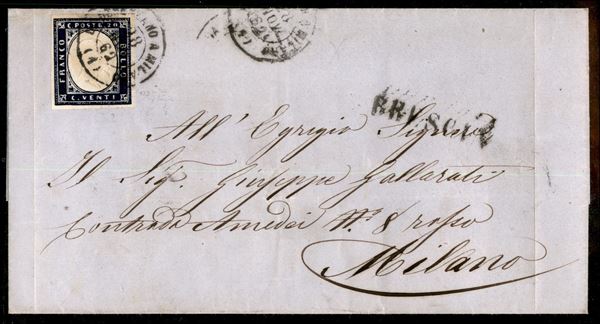 C. POSTE 20
FRANCO
BOLLO
C. VENTI
62
(4)
BRESCIA
All' Egregio Signore
Il Sigr. Giuseppe Gallarati
Contrada Amedei No. 8 rosso
Milano